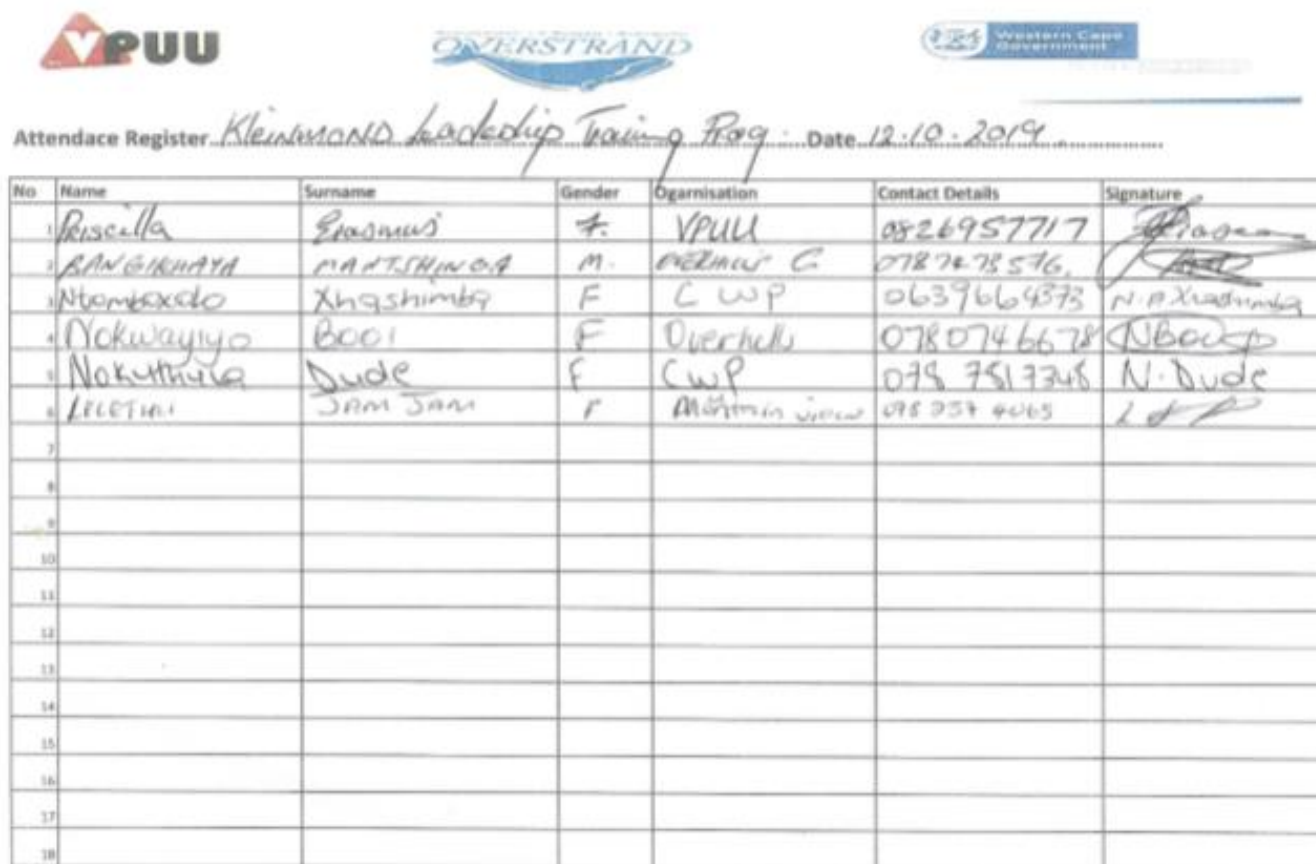 VPUU
OVERSTRAND
Western Cape
Government
Attendace Register Kleinmond Leadership Training Prog. Date 12.10.2019
No Name Surname Gender Ogarnisation Contact Details Signature
1 Priscilla Erasmus F. VPUU 0826957717
2 BANGIKHAYA MANTSHINGA M. C
3 Xhashimba F CWP 0639664373
4 Nokwayiyo Booi F Overhills 0780746678 NBooi
5 Nokuthula Dude F CWP 078 7817348 N. Dude
6 JAM JAM F view
7
8
9
10
11
12
13
14
15
16
17
18